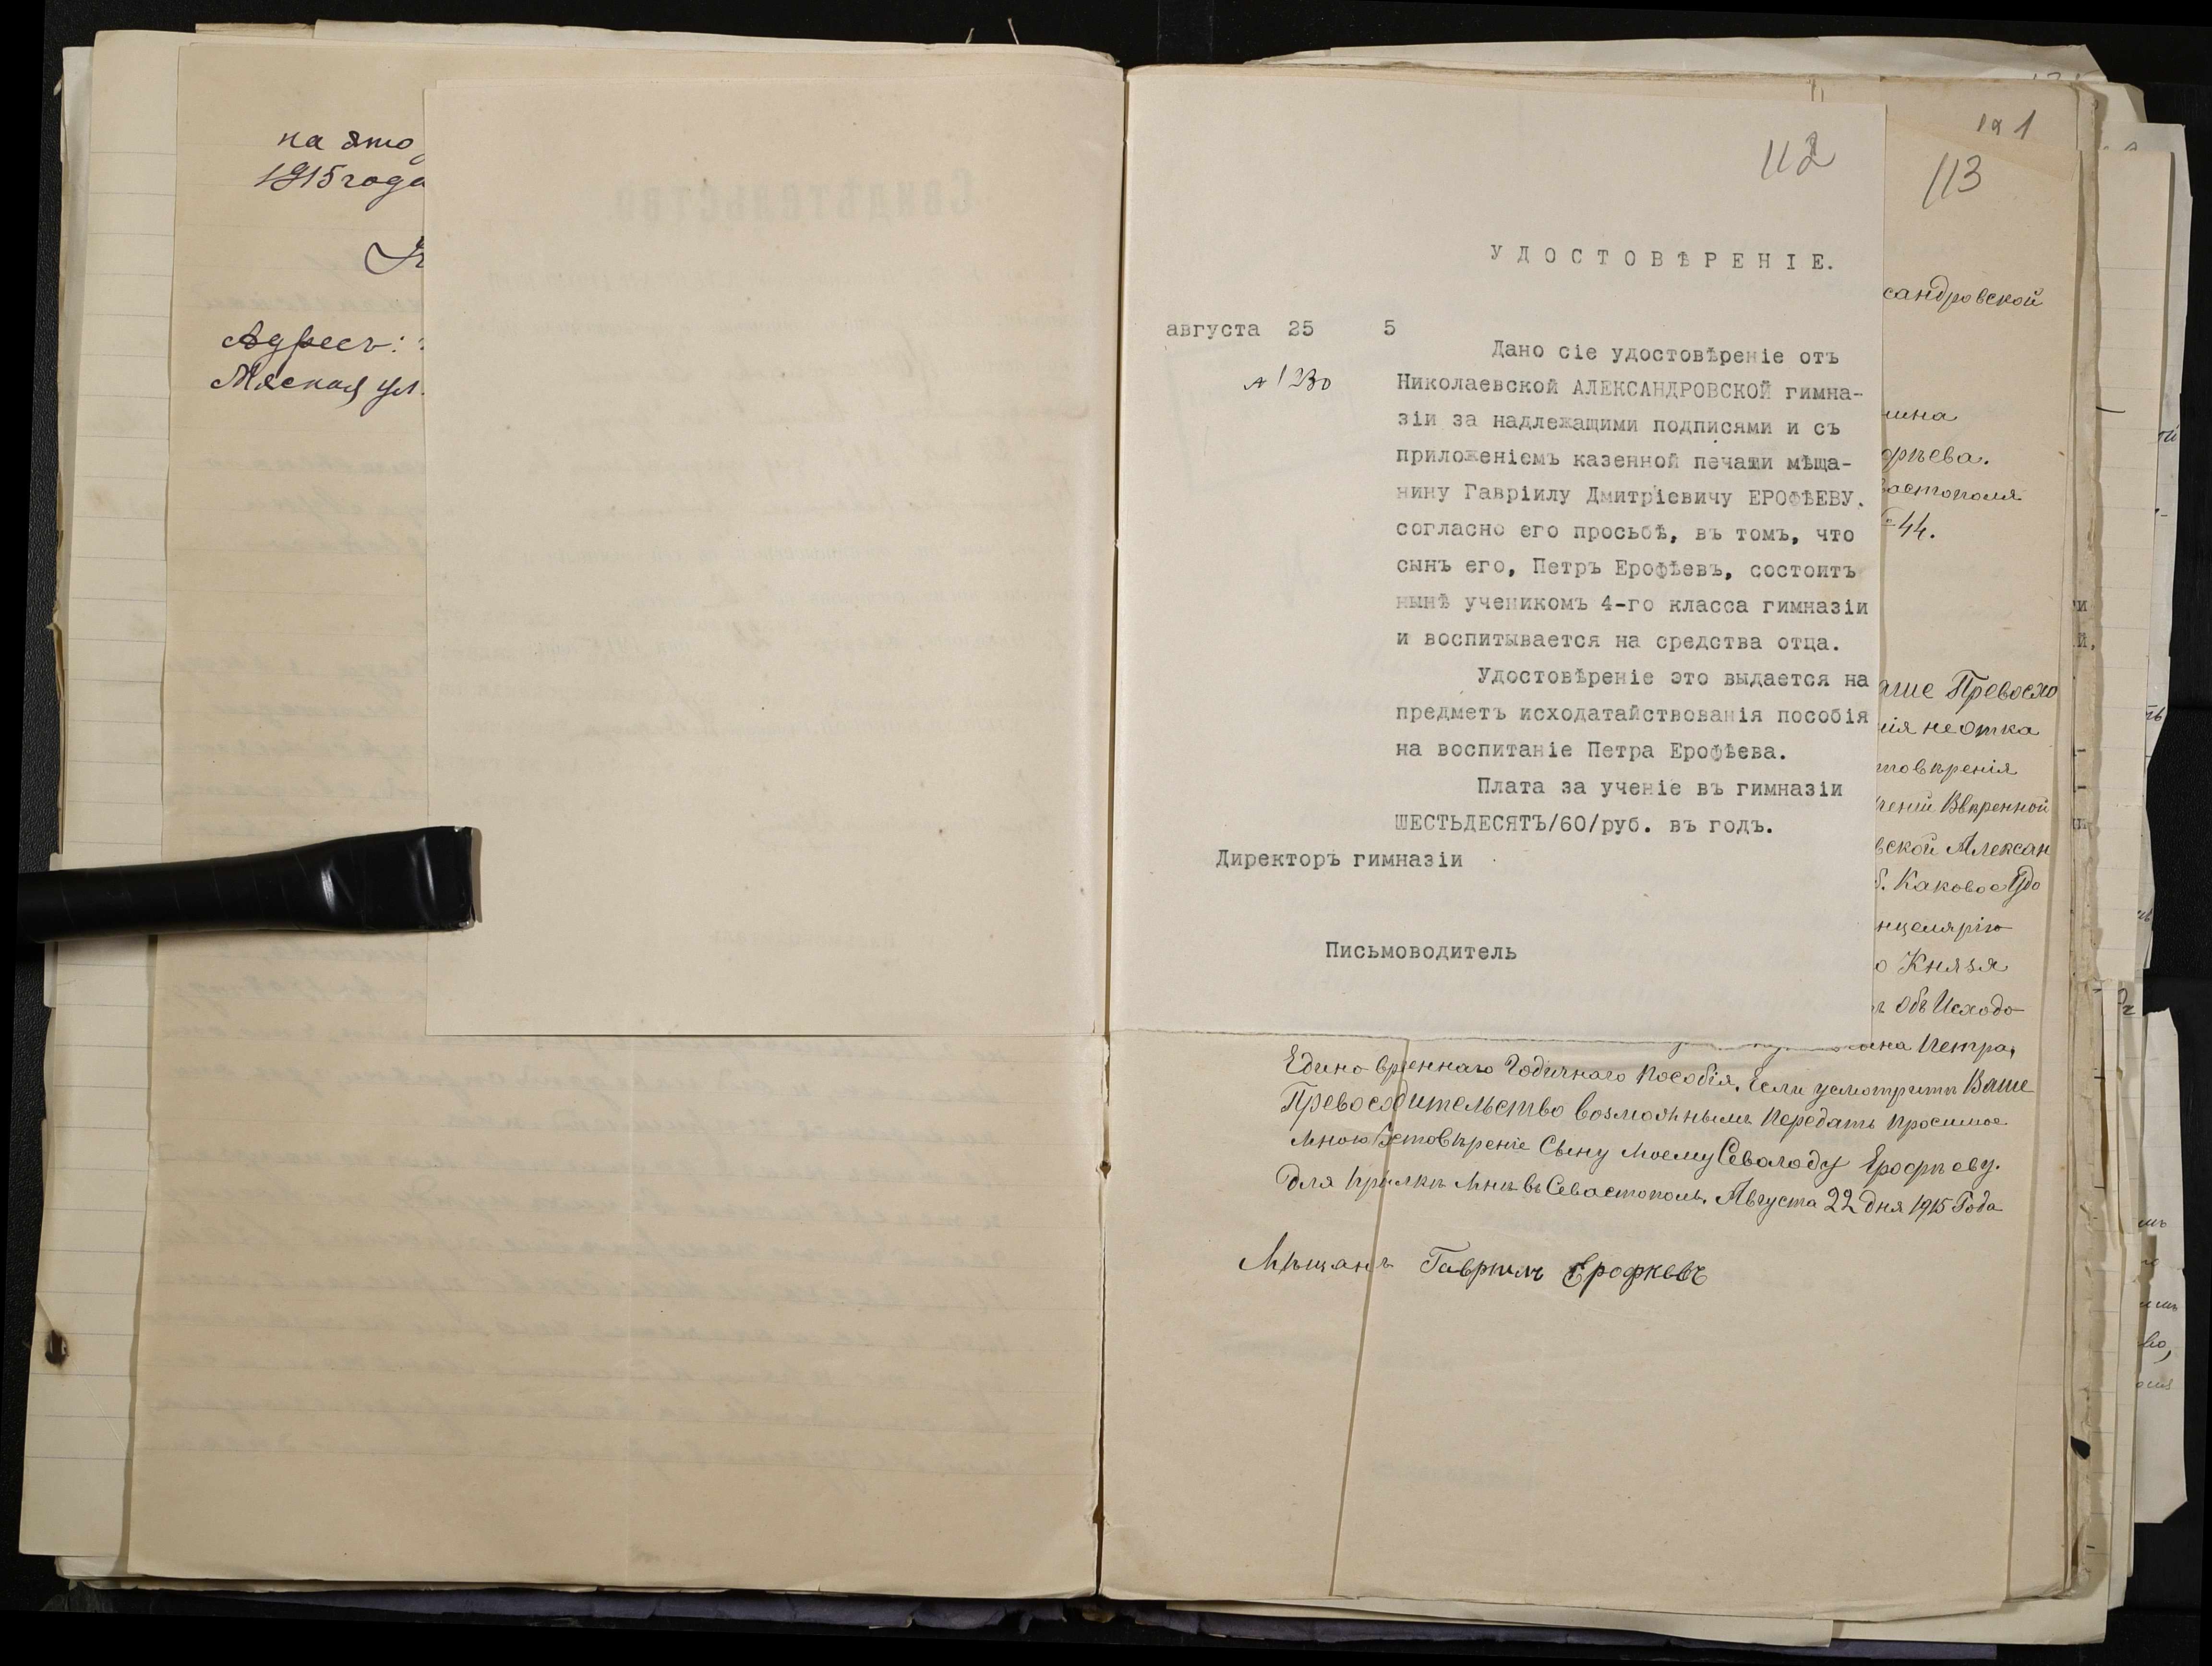 на это
1915 года
Адресъ:
Мяская ул.
112
УДОСТОВѢРЕНІЕ.
августа 25 5
№ 1230
Дано сіе удостовѣреніе отъ
Николаевской АЛЕКСАНДРОВСКОЙ гимна-
зіи за надлежащими подписями и съ
приложеніемъ казенной печати мѣща-
нину Гавріилу Дмитріевичу ЕРОФѢЕВУ.
согласно его просьбѣ, въ томъ, что
сынъ его, Петръ Ерофѣевъ, состоитъ
нынѣ ученикомъ 4-го класса гимназіи
и воспитывается на средства отца.
Удостовѣреніе это выдается на
предметъ исходатайствованія пособія
на воспитаніе Петра Ерофѣева.
Плата за ученіе въ гимназіи
ШЕСТЬДЕСЯТЪ/60/руб. въ годъ.
Директоръ гимназіи
Письмоводитель
113
сандровской
шина
офѣева.
вастополя
44.
аше Превосхо
нія не отка
товѣренія
ченіи Ввѣренной
вской Алексан
б. Каковое Удо
нцелярію
о Князя
Объ Исходо
сына Петра,
Едино врѣеннаго Годичнаго Пособія. Если усмотритъ Ваше
Превосходительство возможнымъ Передать Просимое
Мною Устовѣреніе Сыну Моему Севалоду Ерофѣеву.
Для Прсилки Мнѣ въ Севастополь. Августа 22 дня 1915 Года
Мѣщанъ Гаврилъ Ерофѣевъ